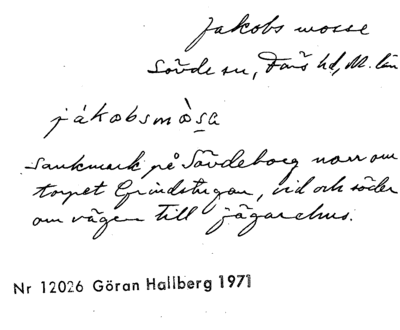 Jakobs mosse
Sövde sn, Färs hd, M. län
jákobsmòsa
Sankmark på Sövdeborg norr om
torpet Grindstugan, vid och söder
om vägen till jägarehus.
Nr 12026 Göran Hallberg 1971